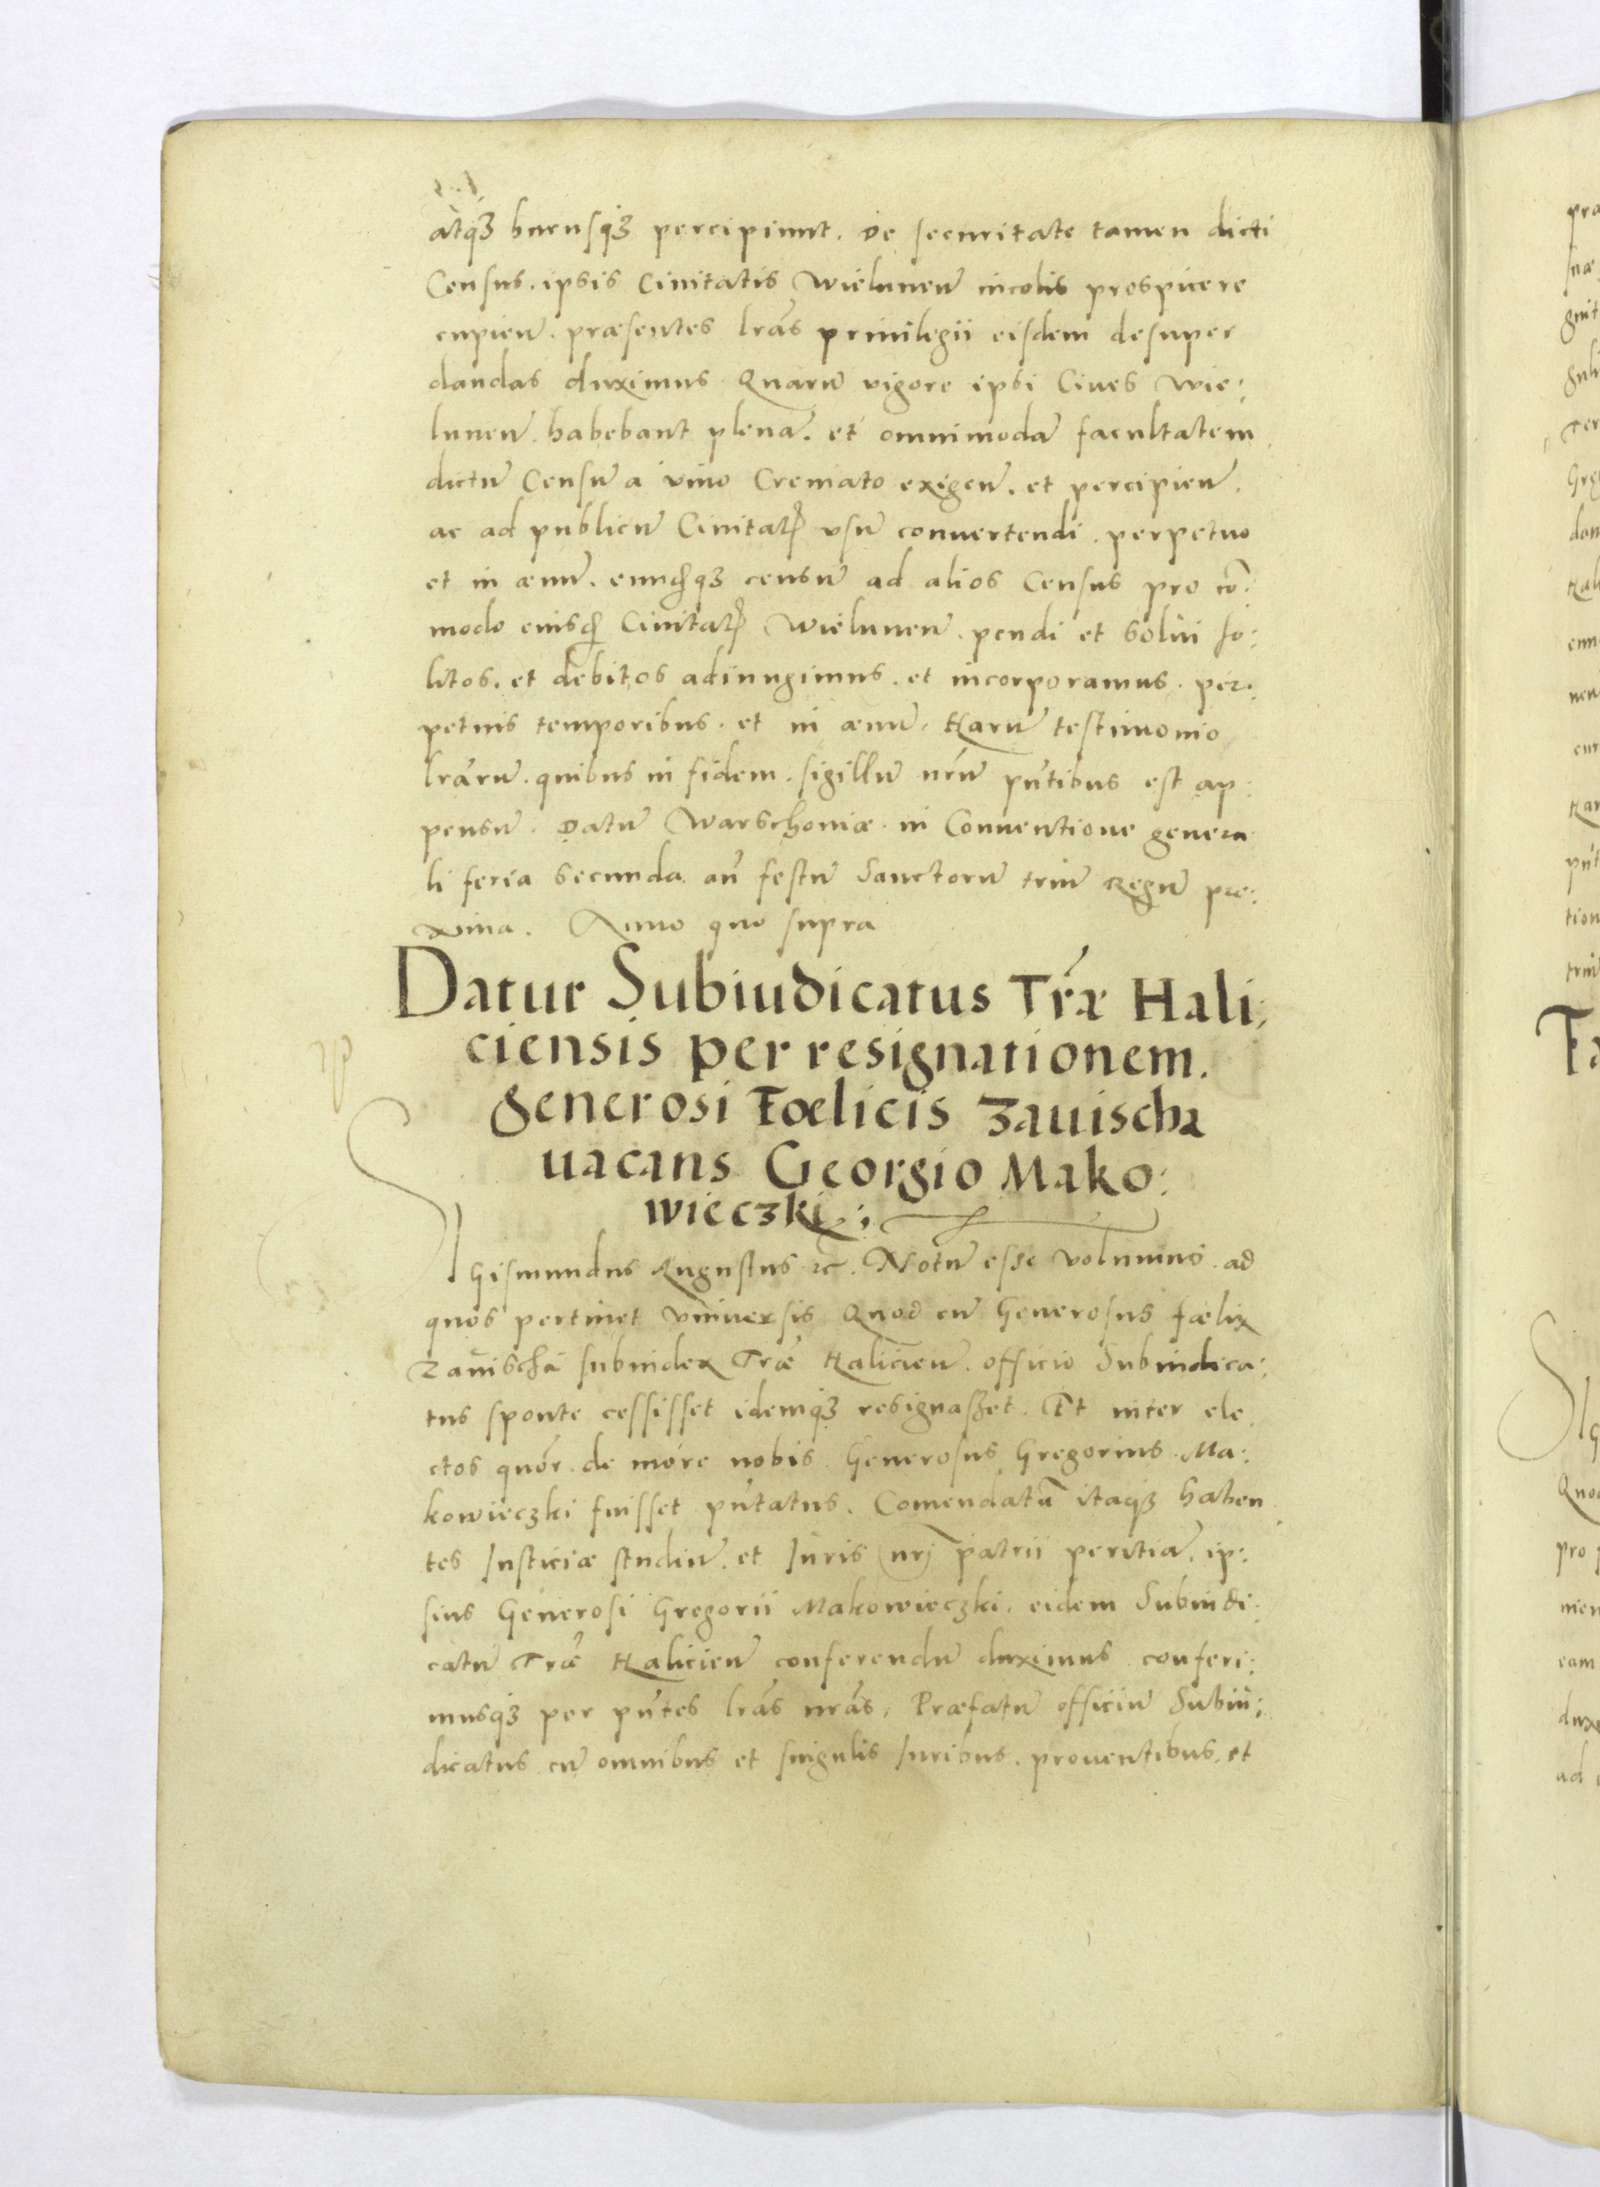 atq₃ hucusq₃ percipiunt. De securitate tamen dicti
Census. ipsis Ciuitatis Wielunen̄ incolis prospicere
cupien̄. præsentes lrās priuilegii eisdem desuper
dandas duximus. Quarū vigore ipsi Ciues Wie:
lunen̄. habebunt plenā. et omnimodā facultatem
dictū Censū a vino Cremato exigen̄. et percipien̄.
ac ad publicū Ciuitat̄ vsū conuertendi. perpetuo
et in æuū. eundq₃ censū ad alios Census pro cō:
modo eiusd̄ Ciuitat̄ Wielunen̄. pendi et solui so:
litos. et debitos adiungimus. et incorporamus. per:
petuis temporibus. et in æuū. Harū testimonio
lrārū. quibus in fidem. sigillū nrū pn̄tibus est ap:
pensū. Datū Warschouiæ in Conuentione genera
li feria secunda an̄ festū Sanctorū triū Regū pro:
xima. Anno quo supra
Datur Subiudicatus Trræ Hali:
ciensis per resignationem
generosi Fœlicis Zauischa
uacans Georgio Mako:
wieczki:,
SIgismundus Augustus ꝛc. Notū esse volumus. ad
quos pertinet vniuersis Quod cū Generosus fælix
Zauischa subiudex Træ Halicien̄. officio Subiudica:
tus sponte cessisset idemq₃ resignasset. Et inter ele
ctos quōr de more nobis Generosus Gregorius Ma:
kowieczki fuisset pn̄tatus. Comendatū itaq₃ haben
tes Iusticiæ studiū. et Iuris nrj patrii peritiā. ip:
sius Generosi Gregorii Makowieczki. eidem Subiudi:
catū Træ Halicien̄ conferendū duximus conferi:
musq₃ per pn̄tes lrās nrās. Præfatū officiū Subiu:
dicatus cū omnibus et singulis Iuribus. prouentibus. et